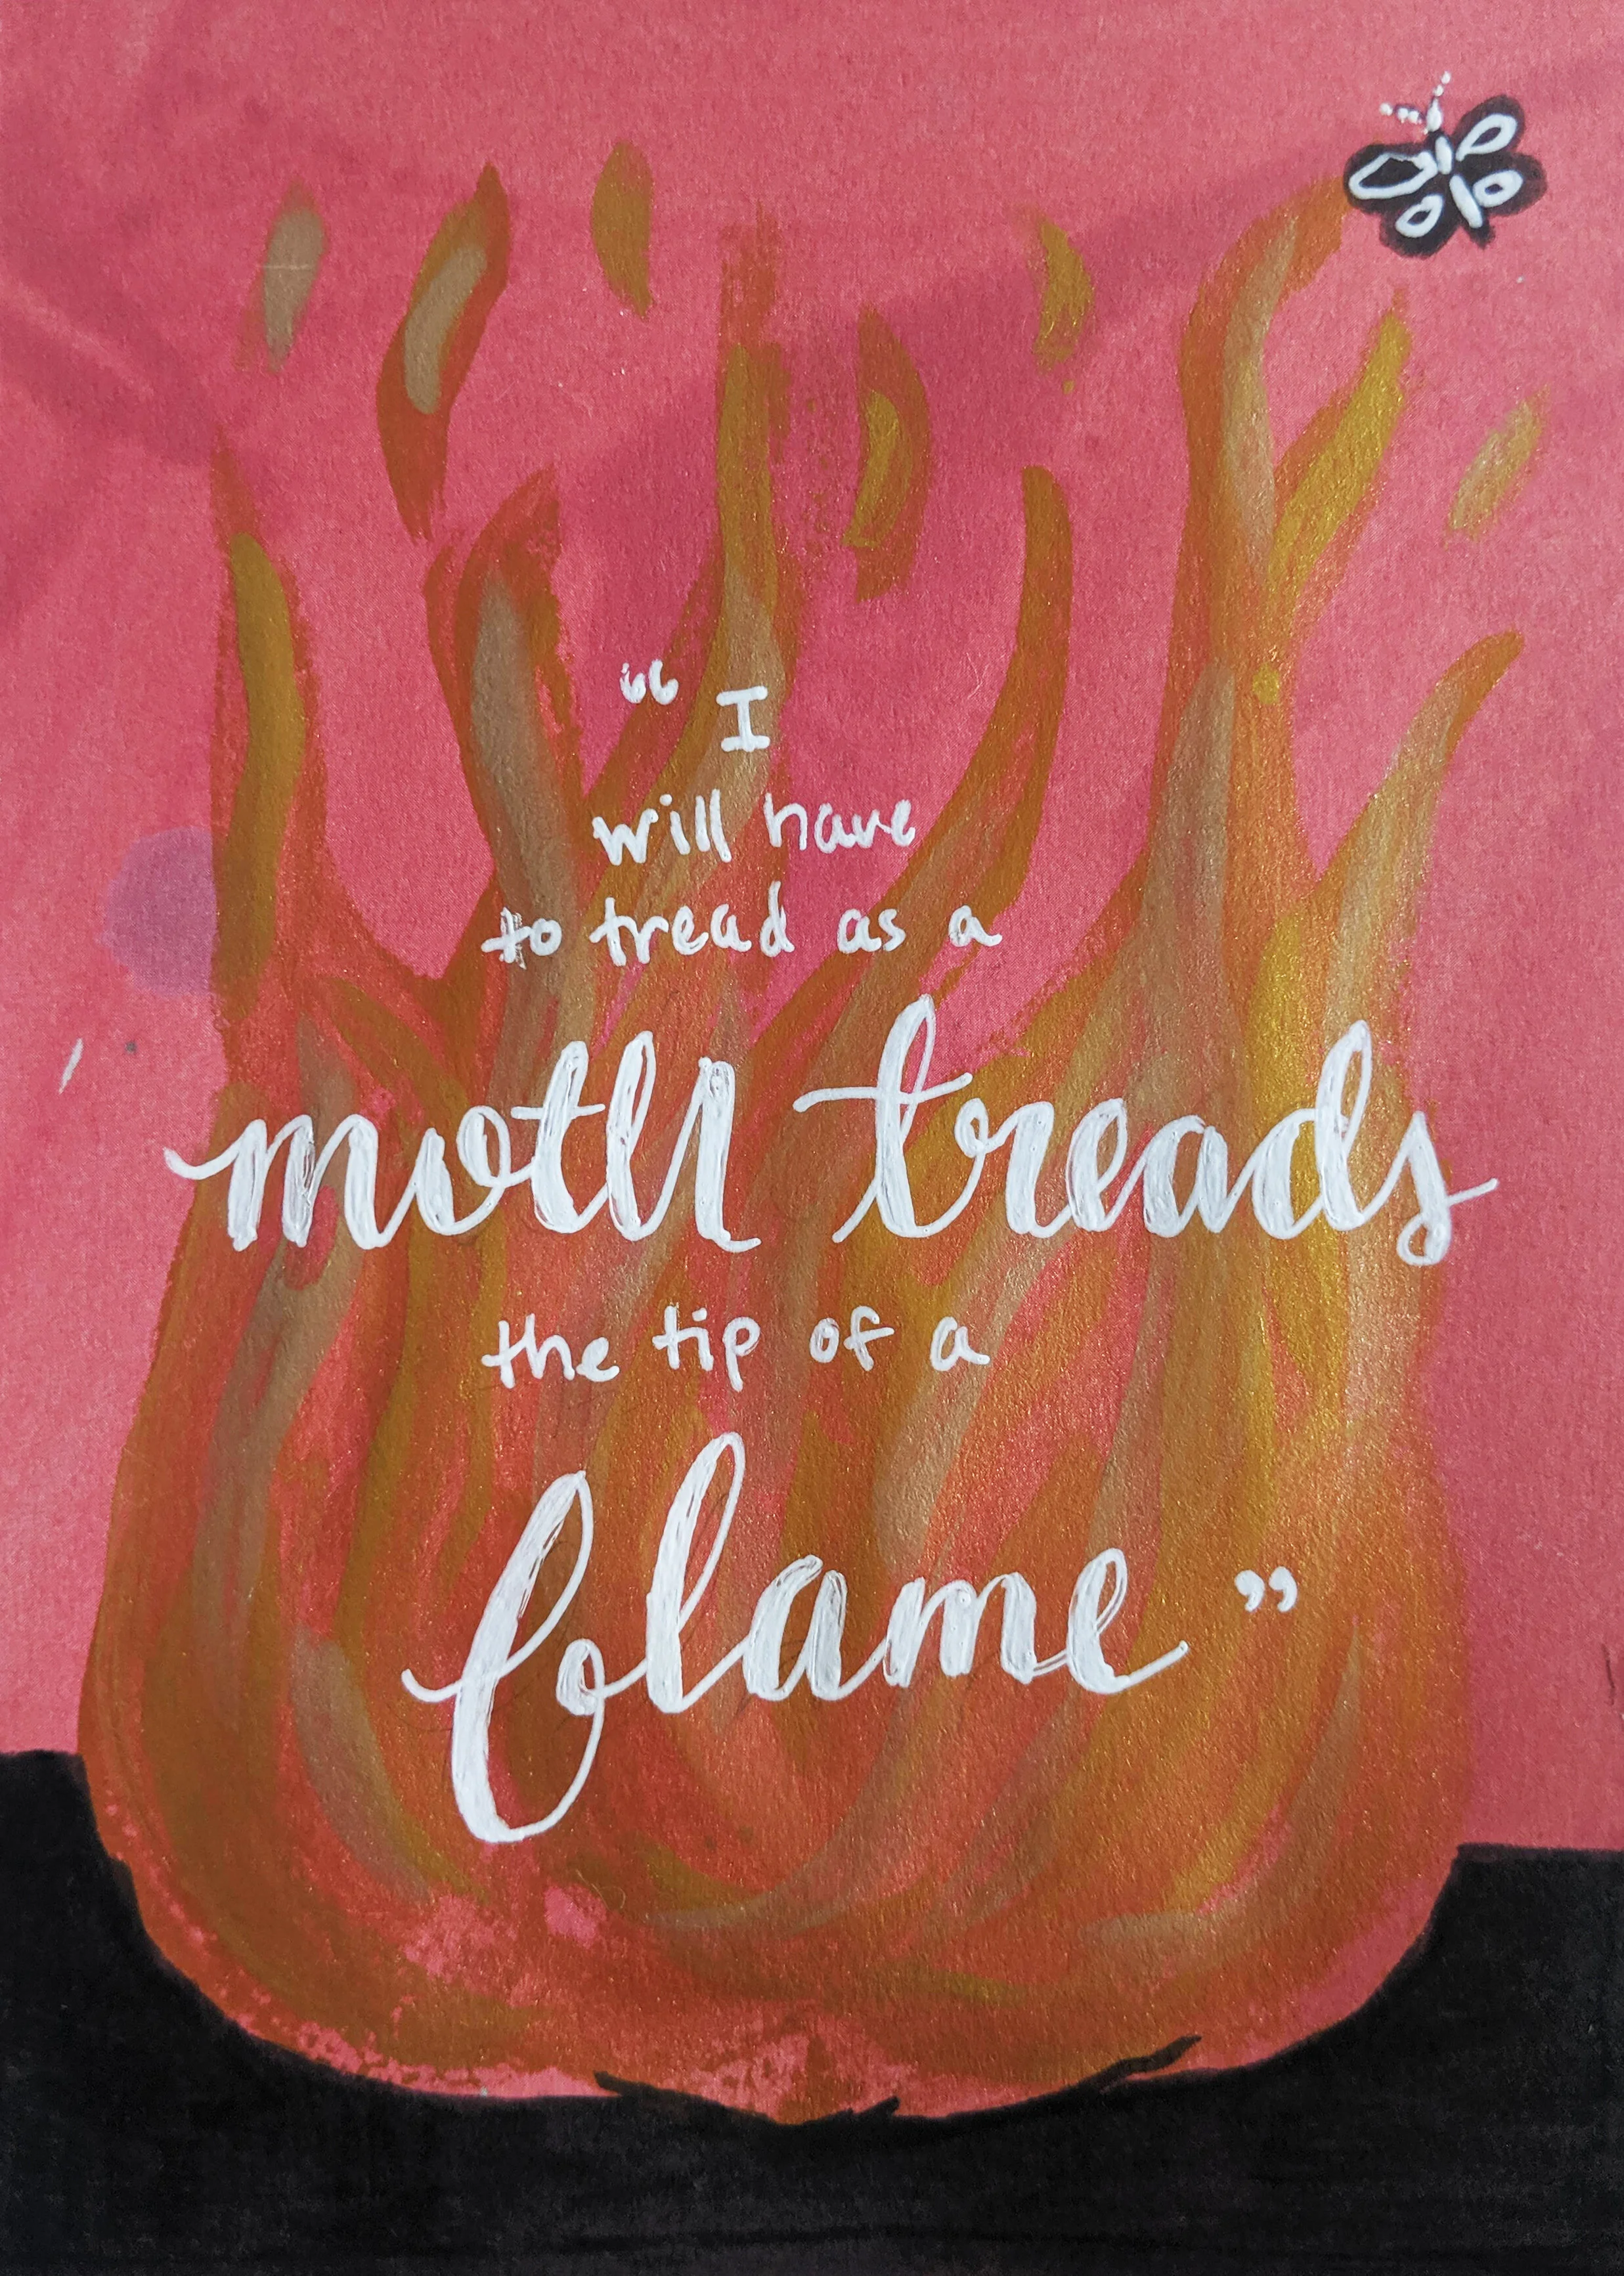 “ I
will have
to tread as a
moth treads
the tip of a
flame ”